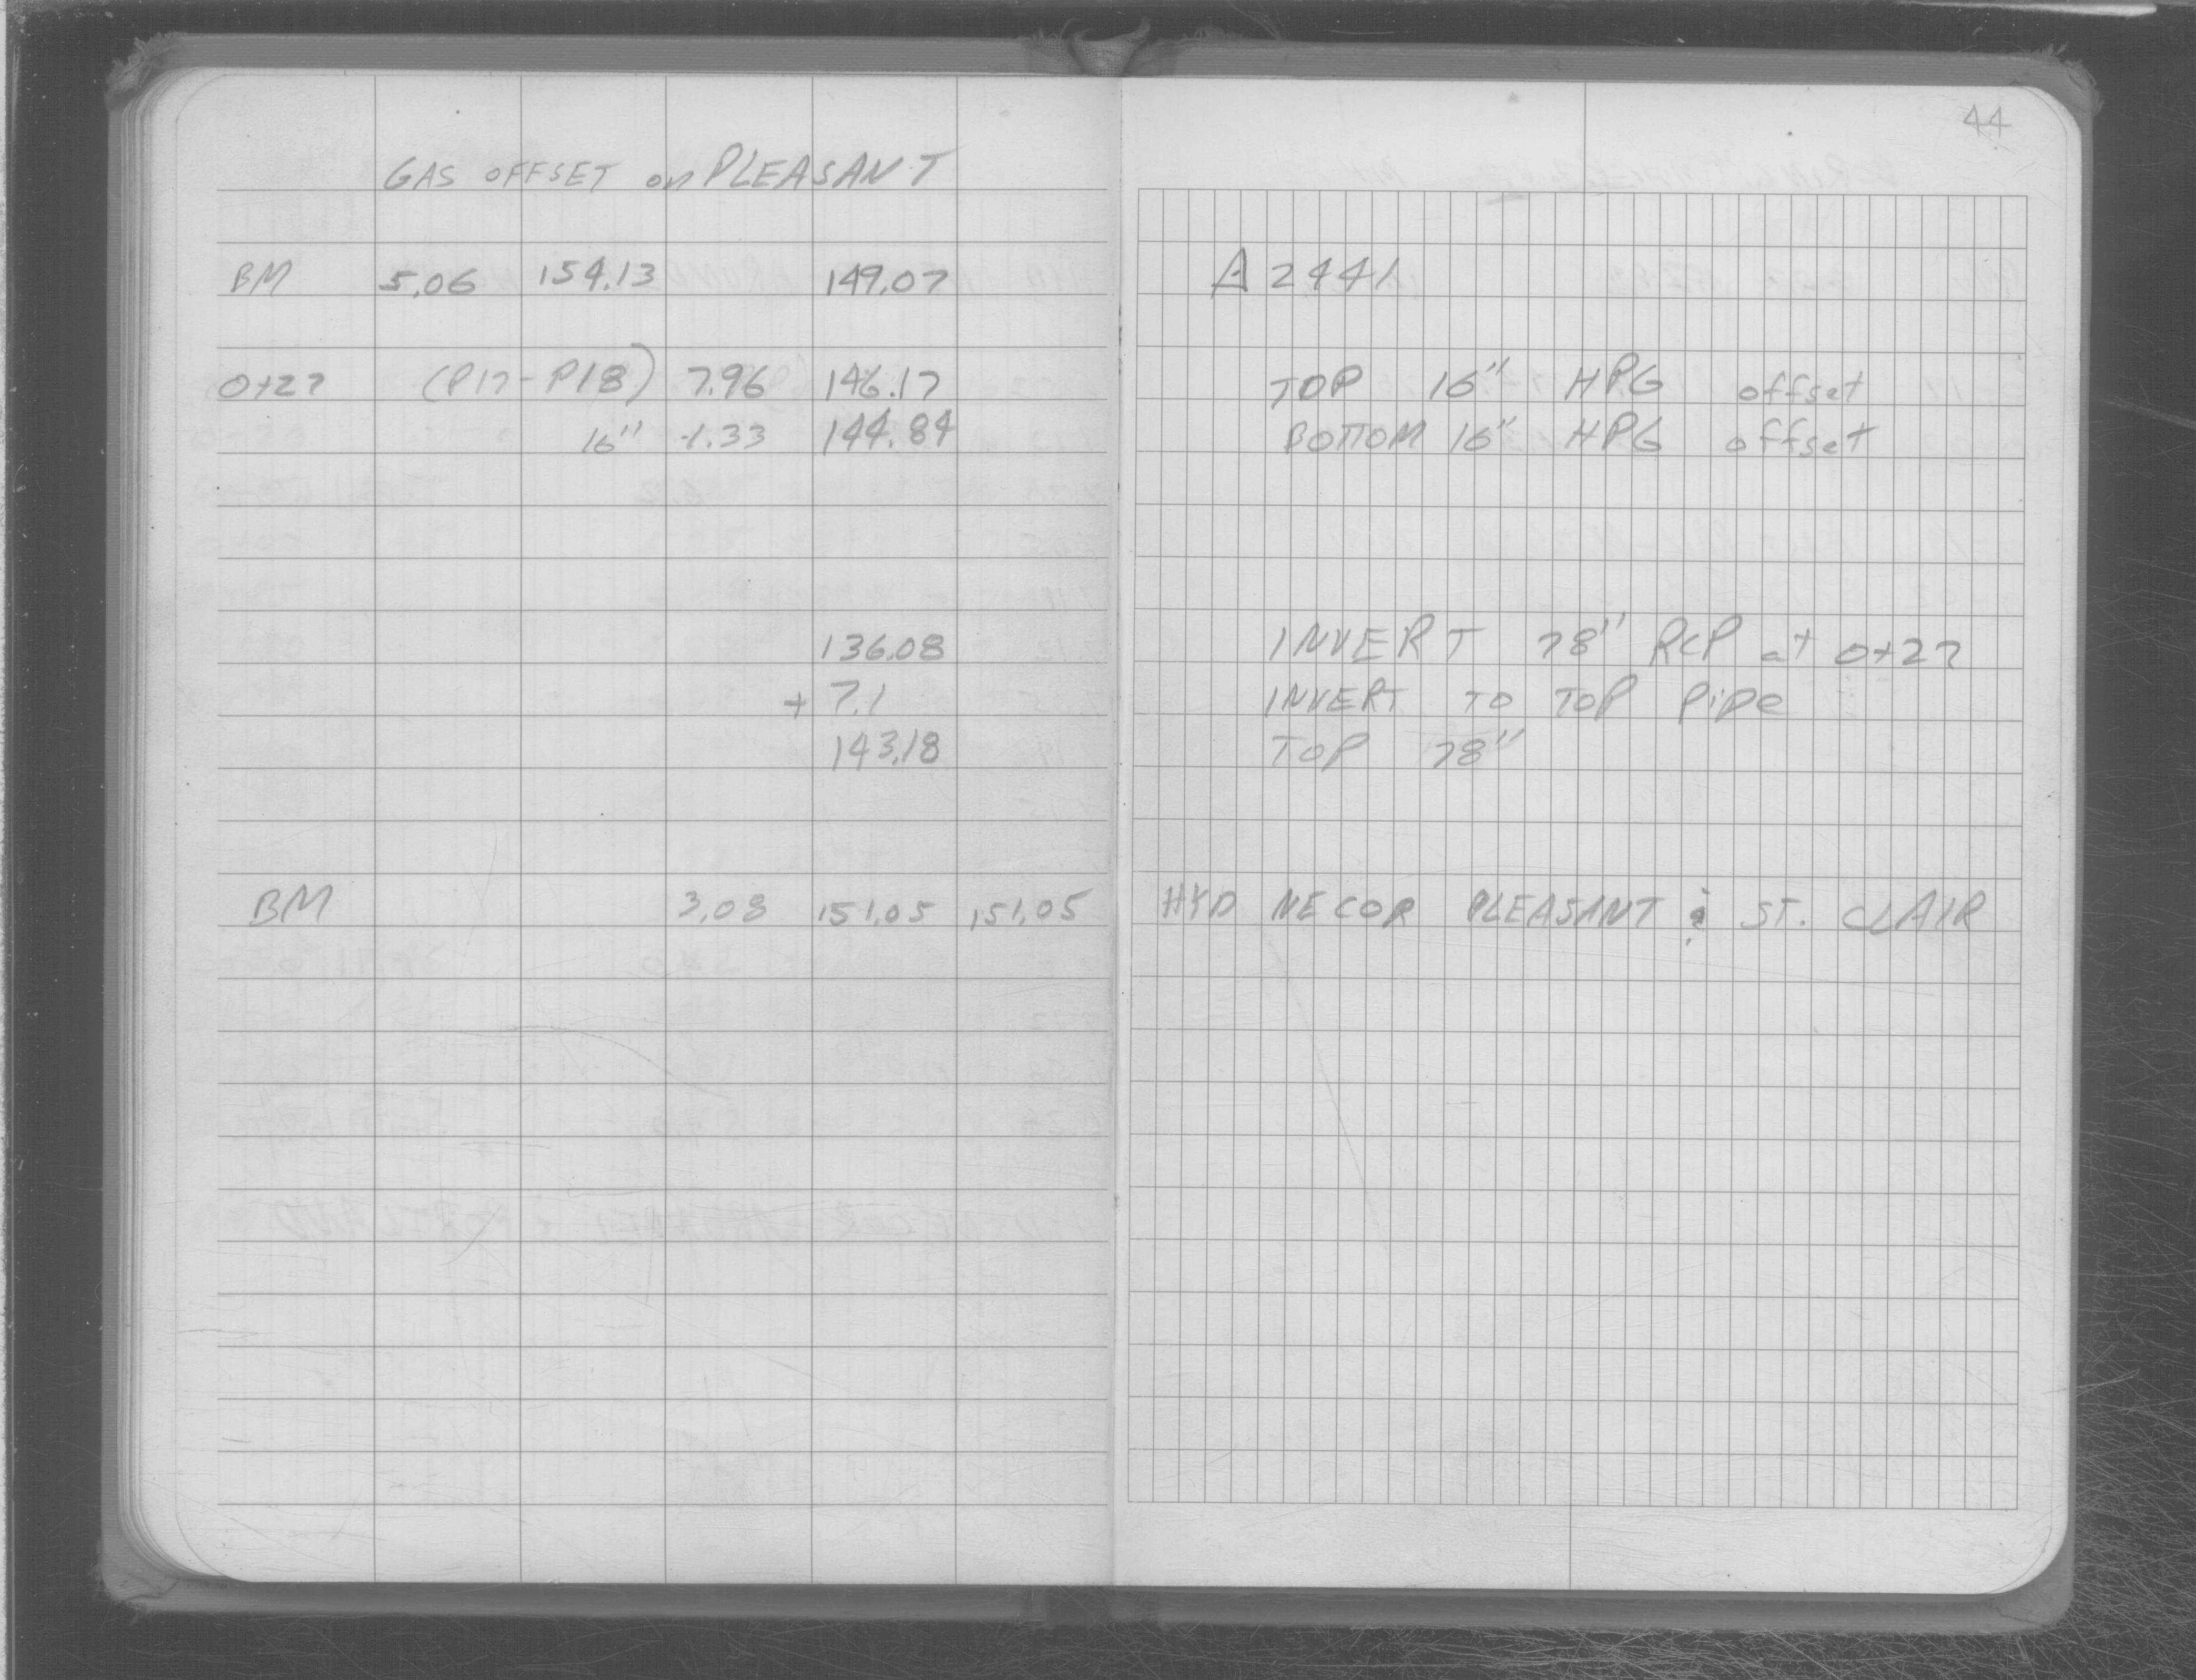 44
GAS OFFSET on PLEASANT
BM 5.06 154.13 149.07 2441
0+27 (P17-P18) 7.96 146.17 TOP 16" HPG offset
16" -1.33 144.84 BOTTOM 16" HPG offset
136.08 INVERT 78" RCP at 0+27
+ 7.1 INVERT TO TOP PiPe
143.18 TOP 78"
BM 3.08 151.05 151.05 HYD NE COR PLEASANT & ST. CLAIR